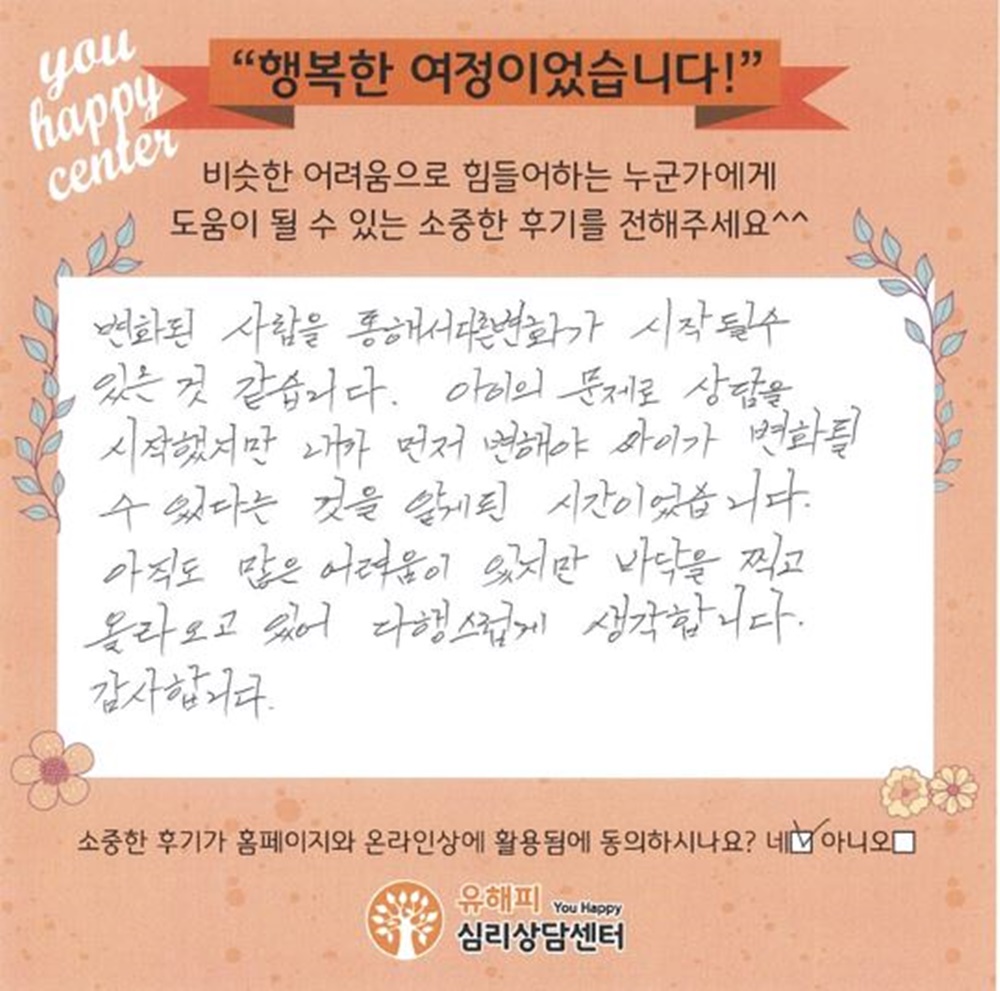 you
happy
center
“행복한 여정이었습니다!”
비슷한 어려움으로 힘들어하는 누군가에게
도움이 될 수 있는 소중한 후기를 전해주세요^^
변화된 사람을 통해서다른변화가 시작될수
있는 것 같습니다. 아이의 문제로 상담을
시작했지만 내가 먼저 변해야 아이가 변화될
수 있다는 것을 알게된 시간이었습니다.
아직도 많은 어려움이 있지만 바닥을 찍고
올라오고 있어 다행스럽게 생각합니다.
감사합니다.
소중한 후기가 홈페이지와 온라인상에 활용됨에 동의하시나요? 네☑ 아니오☐
유해피 You Happy
심리상담센터